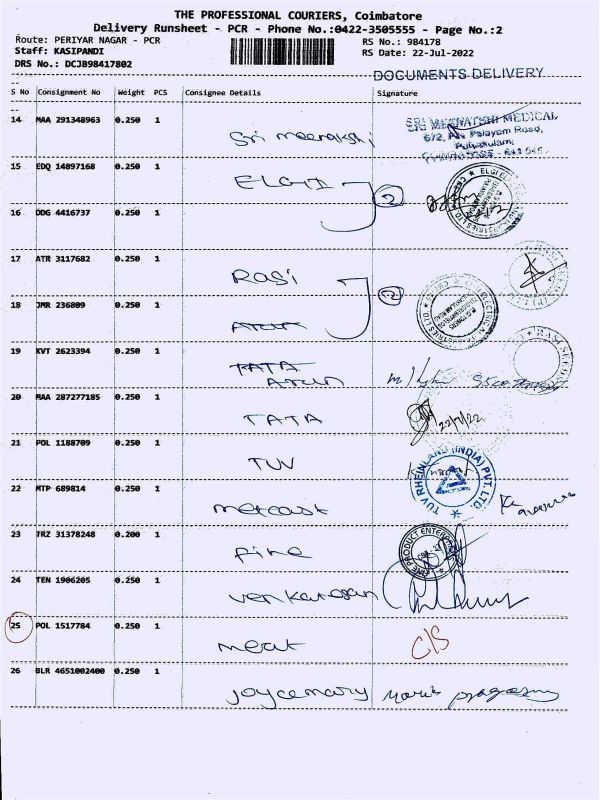 THE PROFESSIONAL COURIERS, Coimbatore
Delivery Runsheet - PCR - Phone No.:0422-3505555 - Page No.:2
Route: PERIYAR NAGAR - PCR RS No.: 984178
Staff: KASIPANDI RS Date: 22-Jul-2022
DRS No.: DCJB98417802
DOCUMENTS DELIVERY
S No Consignment No Weight PCS Consignee Details Signature
14 MAA 291348963 0.250 1 Sri meenakshi
SRI MEENATSHI MEDICAL
15 EDQ 14897168 0.250 1 ELGI 2
16 DDG 4416737 0.250 1
17 ATR 3117682 0.250 1 RaSi 2
18 JMR 236809 0.250 1
19 KVT 2623394 0.250 1 TATA
Arun
20 MAA 287277185 0.250 1 TATA 22/7/22
21 POL 1188709 0.250 1 TUV
TUV RHEINLAND (INDIA) PVT. LTD.
22 MTP 689814 0.250 1 metcast
23 TRZ 31378248 0.200 1 Fine
FINE PRODUCT ENTERPRISES
24 TEN 1906205 0.250 1 venkatesan
25 POL 1517784 0.250 1 merit C/S
26 BLR 4651002400 0.250 1 Joycemary